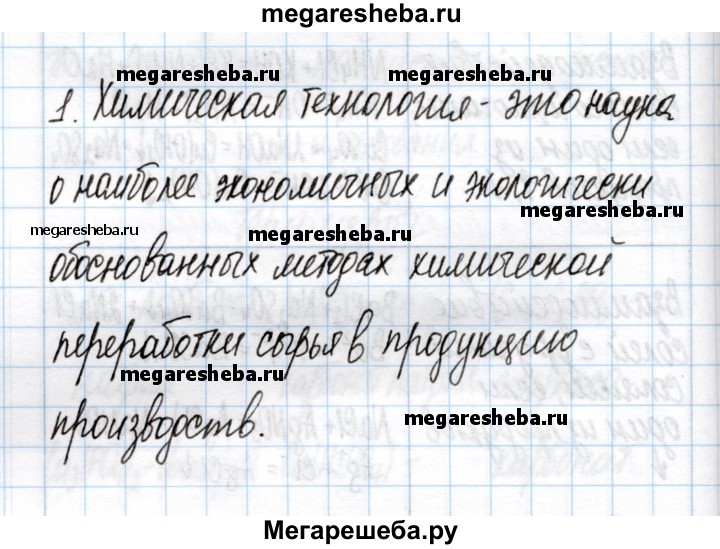 megaresheba.ru
megaresheba.ru megaresheba.ru
1. Химическая технология - это наука
о наиболее экономичных и экологически
megaresheba.ru
megaresheba.ru megaresheba.ru
обоснованных методах химической
переработки сырья в продукцию
megaresheba.ru
производств.
megaresheba.ru
Мегарешеба.ру